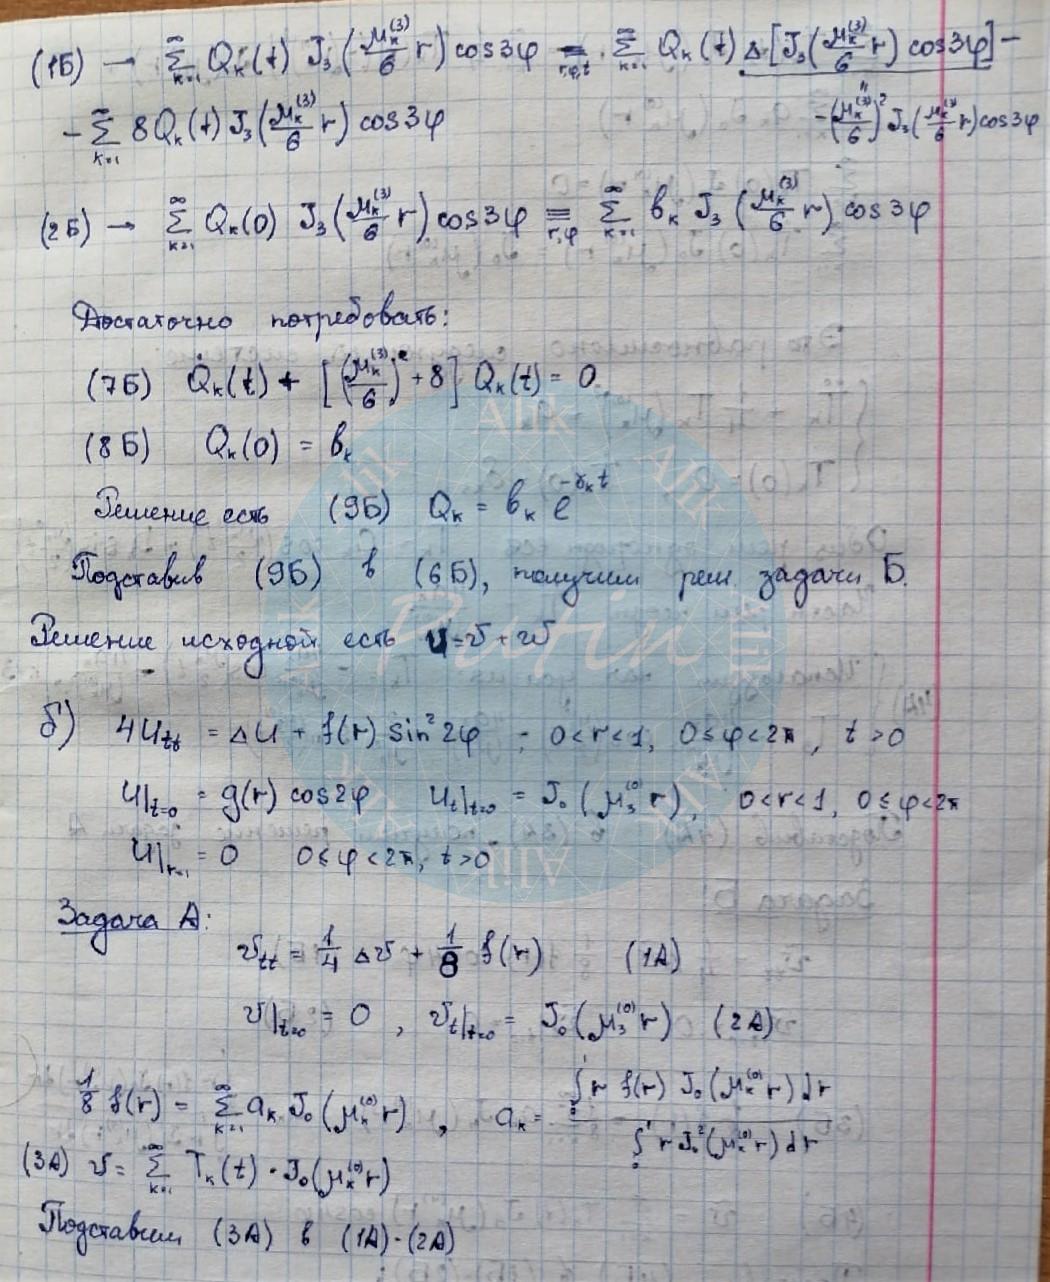 (1Б) → ∞ Σ k=1 Qₖ(t) J₃(μₖ⁽³⁾/6 r) cos3φ ≡ r,φ,t ∞ Σ k=1 Qₖ(t) Δ[J₃(μₖ⁽³⁾/6 r) cos3φ] −
− ∞ Σ k=1 8Qₖ(t) J₃(μₖ⁽³⁾/6 r) cos3φ
−(μₖ⁽³⁾/6)² J₃(μₖ⁽³⁾/6 r) cos3φ
(2Б) → ∞ Σ k=1 Qₖ(0) J₃(μₖ⁽³⁾/6 r) cos3φ ≡ r,φ ∞ Σ k=1 bₖ J₃(μₖ⁽³⁾/6 r) cos3φ
Достаточно потребовать:
(7Б) Q̇ₖ(t) + [(μₖ⁽³⁾/6)² + 8] Qₖ(t) = 0
(8Б) Qₖ(0) = bₖ
Решение есть (9Б) Qₖ = bₖ e^(−γₖt)
Подставив (9Б) в (6Б), получим реш задачи Б.
Решение исходной есть u = v + w
б) 4Uₜₜ = ΔU + f(r) sin²2φ ; 0<r<1, 0≤φ<2π, t>0
U|ₜ₌₀ = g(r) cos2φ Uₜ|ₜ₌₀ = J₀(μ₃⁽⁰⁾r), 0<r<1, 0≤φ<2π
U|ᵣ₌₁ = 0 0≤φ<2π, t>0
Задача А:
vₜₜ = 1/4 Δv + 1/8 f(r) (1А)
v|ₜ₌₀ = 0, vₜ|ₜ₌₀ = J₀(μ₃⁽⁰⁾r) (2А)
1/8 f(r) = ∞ Σ k=1 aₖ J₀(μₖ⁽⁰⁾r), aₖ = ∫₀¹ r f(r) J₀(μₖ⁽⁰⁾r) dr / ∫₀¹ r J₀²(μₖ⁽⁰⁾r) dr
(3А) v = ∞ Σ k=1 Tₖ(t) · J₀(μₖ⁽⁰⁾r)
Подставим (3А) в (1А)-(2А)
Alik
Alik
Alik
Alik
Alik
Alik
Alik
Alik
Putin